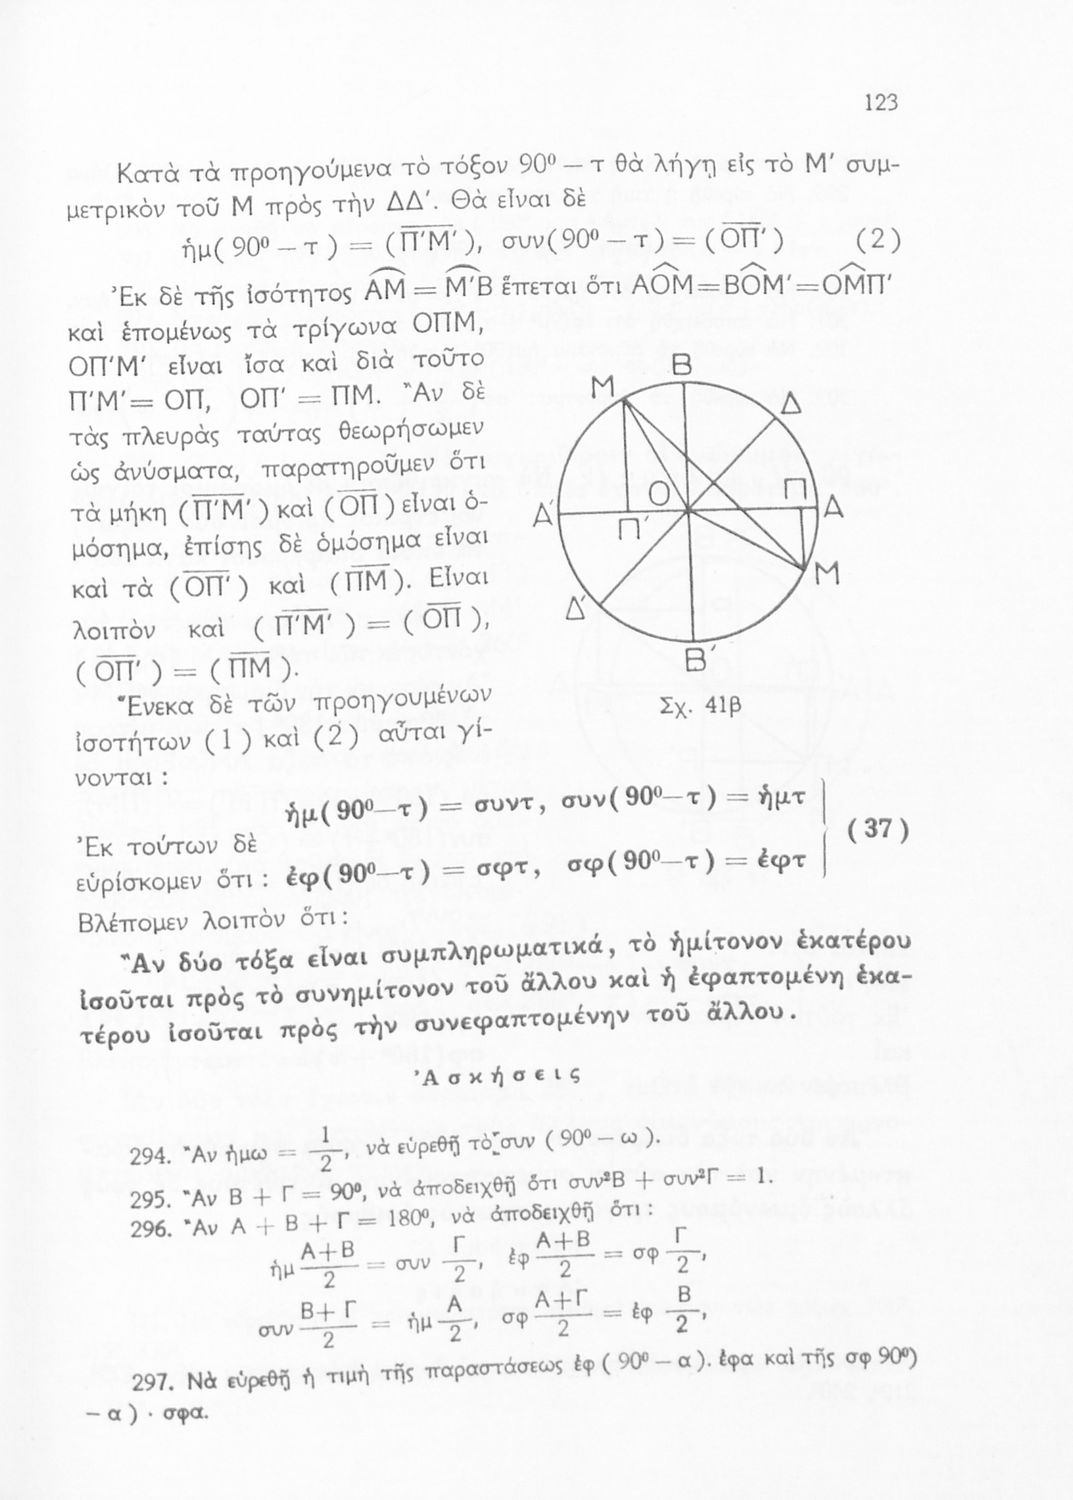 123
Κατὰ τὰ προηγούμενα τὸ τόξον 90⁰ — τ θὰ λήγῃ εἰς τὸ Μ′ συμ-
μετρικὸν τοῦ Μ πρὸς τὴν ΔΔ′. Θὰ εἶναι δὲ
ἡμ( 90⁰ — τ ) = ( Π̅′̅Μ̅′ ), συν(90⁰ — τ ) = ( Ο̅Π̅′ ) (2)
Ἐκ δὲ τῆς ἰσότητος Α͡Μ = Μ͡′Β ἕπεται ὅτι ΑÔΜ=ΒÔΜ′=ΟΜ̂Π′
καὶ ἑπομένως τὰ τρίγωνα ΟΠΜ,
ΟΠ′Μ′ εἶναι ἴσα καὶ διὰ τοῦτο
Π′Μ′= ΟΠ, ΟΠ′ = ΠΜ. Ἂν δὲ
τὰς πλευρὰς ταύτας θεωρήσωμεν
ὡς ἀνύσματα, παρατηροῦμεν ὅτι
τὰ μήκη ( Π̅′̅Μ̅′ ) καὶ ( Ο̅Π̅ ) εἶναι ὁ-
μόσημα, ἐπίσης δὲ ὁμόσημα εἶναι
καὶ τὰ ( Ο̅Π̅′ ) καὶ ( Π̅Μ̅ ). Εἶναι
λοιπὸν καὶ ( Π̅′̅Μ̅′ ) = ( Ο̅Π̅ ),
( Ο̅Π̅′ ) = ( Π̅Μ̅ ).
Β
Μ′
Δ
Ο
Π
Α′
Α
Π′
Μ
Δ′
Β′
Σχ. 41β
Ἕνεκα δὲ τῶν προηγουμένων
ἰσοτήτων ( 1 ) καὶ ( 2 ) αὗται γί-
νονται :
ἡμ( 90⁰—τ ) = συντ, συν( 90⁰—τ ) = ἡμτ
( 37 )
Ἐκ τούτων δὲ
εὑρίσκομεν ὅτι : ἐφ( 90⁰—τ ) = σφτ, σφ( 90⁰—τ ) = ἐφτ
Βλέπομεν λοιπὸν ὅτι :
Ἂν δύο τόξα εἶναι συμπληρωματικά, τὸ ἡμίτονον ἑκατέρου
ἰσοῦται πρὸς τὸ συνημίτονον τοῦ ἄλλου καὶ ἡ ἐφαπτομένη ἑκα-
τέρου ἰσοῦται πρὸς τὴν συνεφαπτομένην τοῦ ἄλλου.
Ἀσκήσεις
294. Ἂν ἡμω = 1/2, νὰ εὑρεθῇ τὸ συν ( 90⁰ — ω ).
295. Ἂν Β + Γ = 90⁰, νὰ ἀποδειχθῇ ὅτι συν²Β + συν²Γ = 1.
296. Ἂν Α + Β + Γ = 180⁰, νὰ ἀποδειχθῇ ὅτι :
ἡμ (Α+Β)/2 = συν Γ/2, ἐφ (Α+Β)/2 = σφ Γ/2,
συν (Β+Γ)/2 = ἡμ Α/2, σφ (Α+Γ)/2 = ἐφ Β/2,
297. Νὰ εὑρεθῇ ἡ τιμὴ τῆς παραστάσεως ἐφ ( 90⁰ — α ). ἐφα καὶ τῆς σφ 90⁰)
— α ) · σφα.